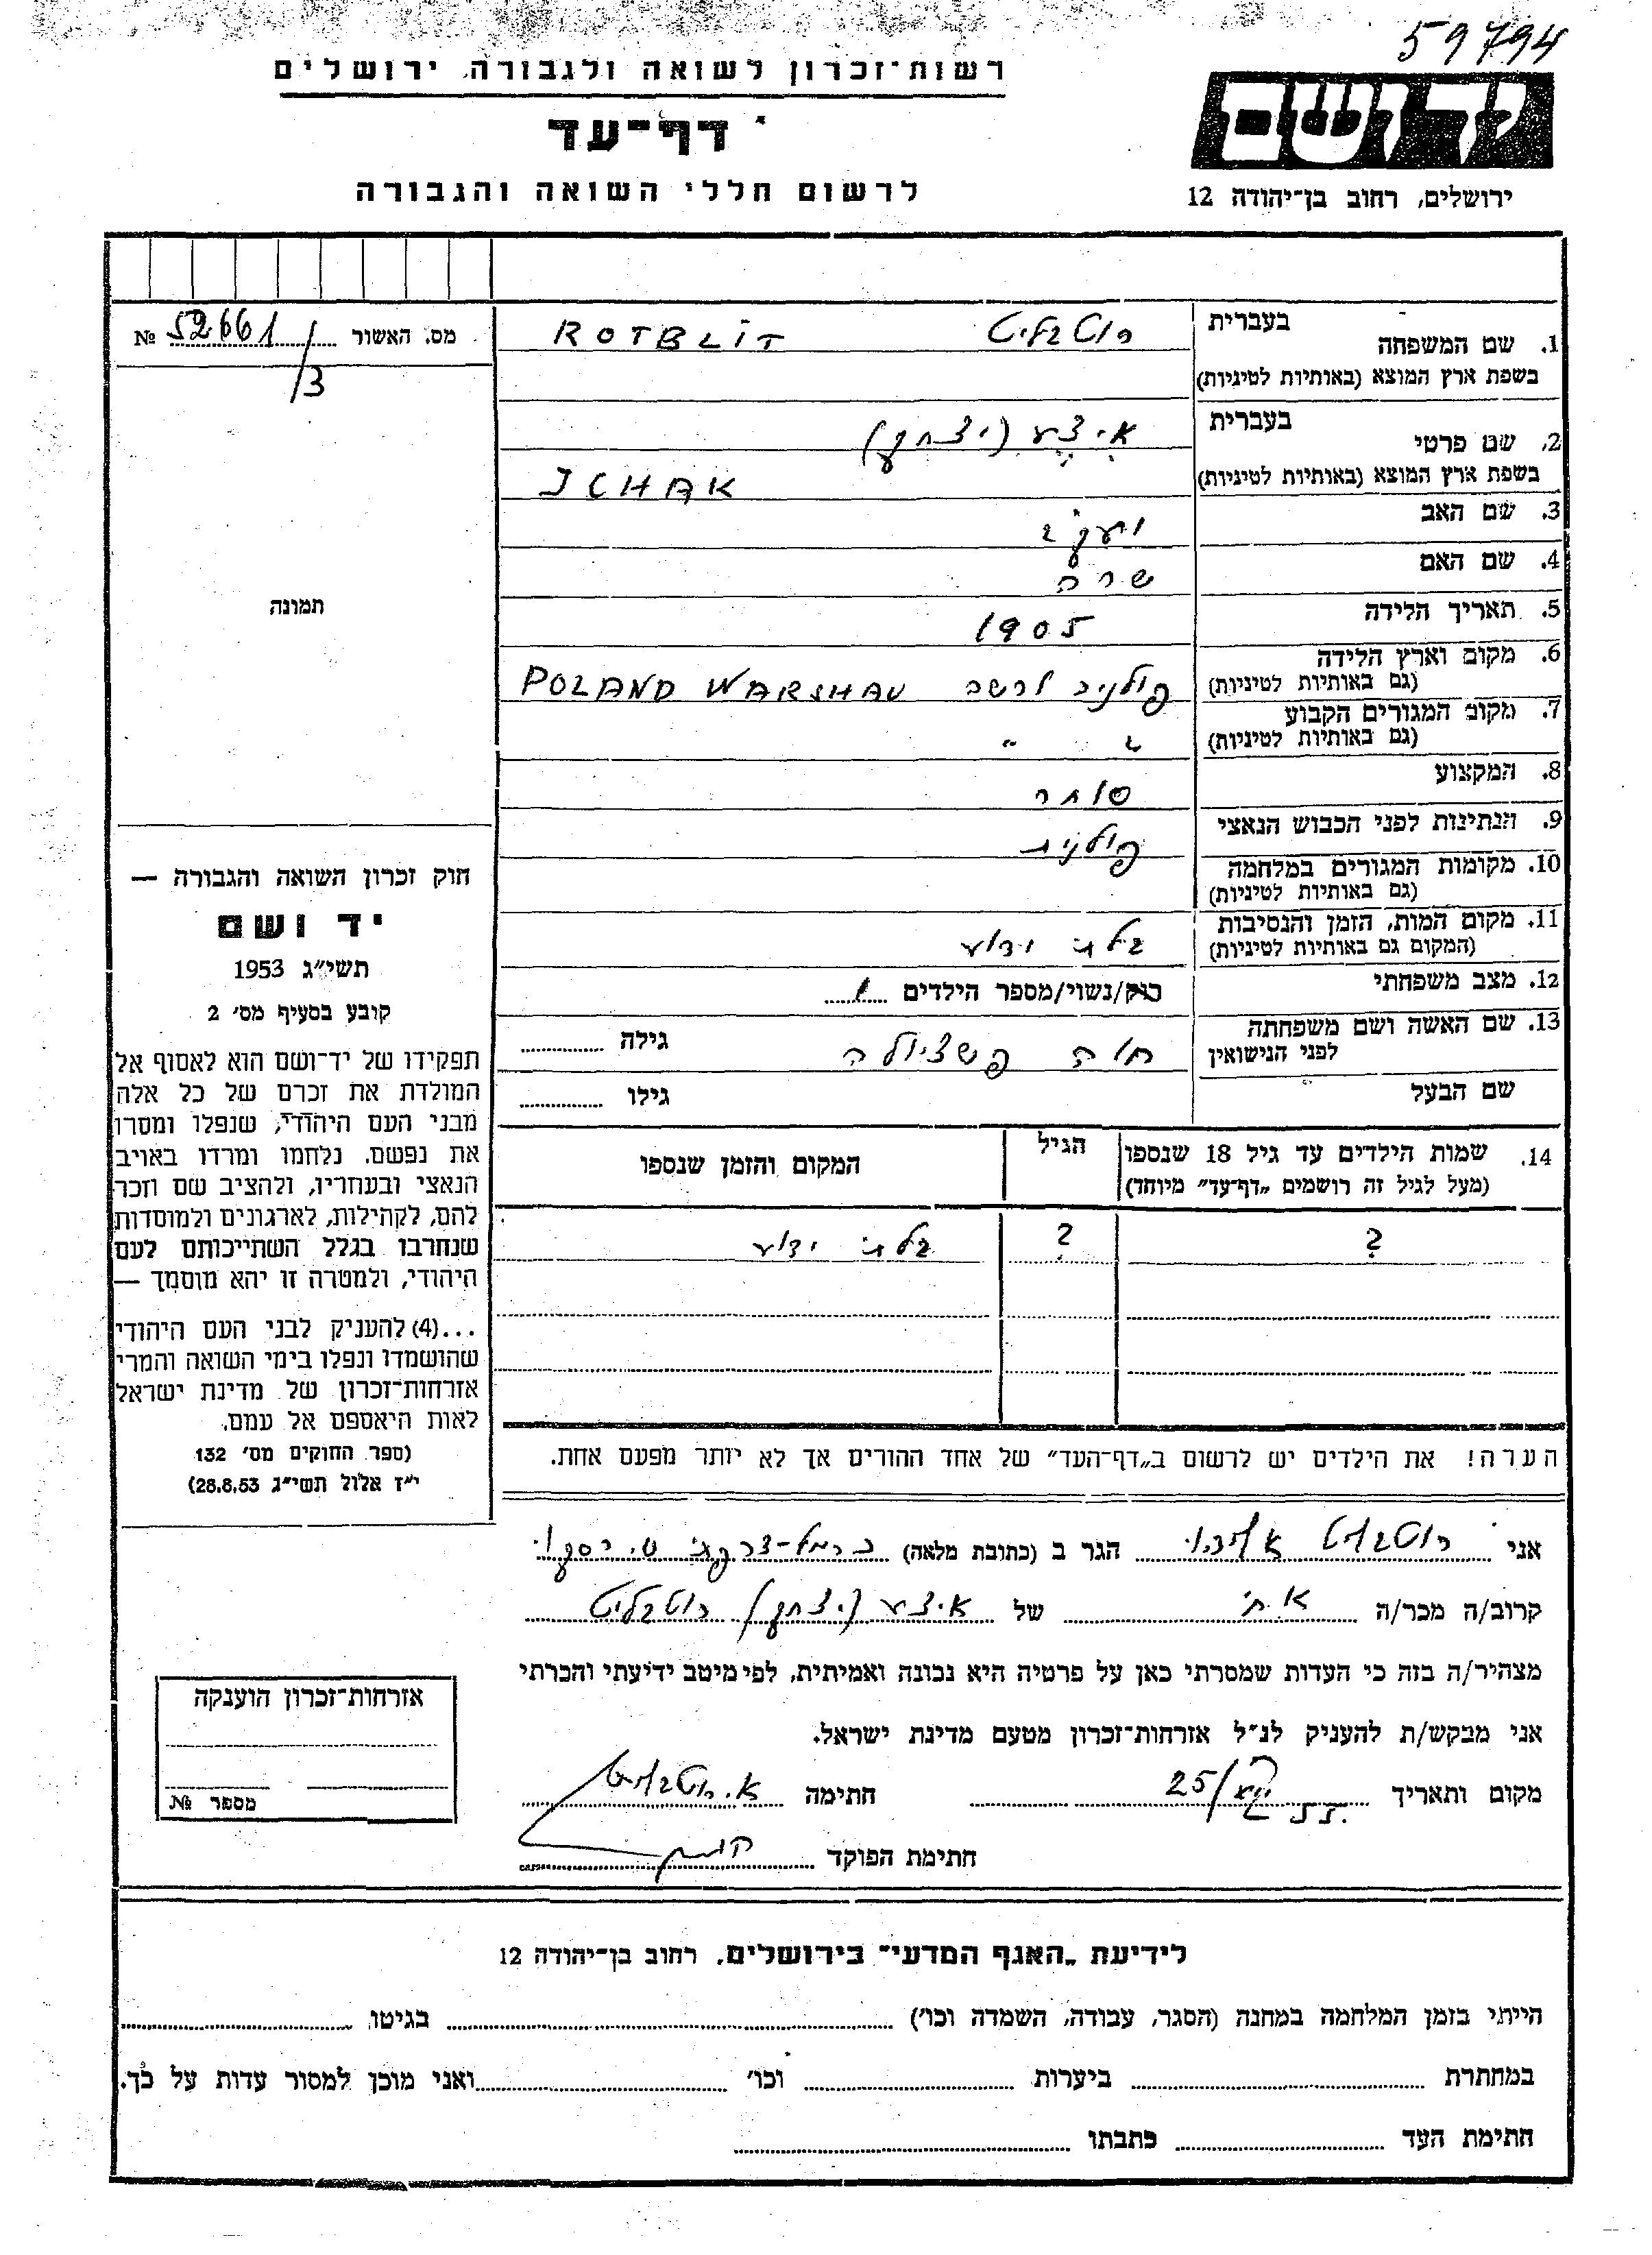 59794
רשות־זכרון לשואה ולגבורה, ירושלים
דף־עד
לרשום חללי השואה והגבורה
ידושם
ירושלים, רחוב בן־יהודה 12
מס. האשור 52661/3 №
תמונה
1. שם המשפחה בעברית רוטבליט ROTBLIT
בשפת ארץ המוצא (באותיות לטיניות)
2. שם פרטי בעברית איצע (יצחק)
בשפת ארץ המוצא (באותיות לטיניות) ICHAK
3. שם האב יעקב
4. שם האם שרה
5. תאריך הלידה 1905
6. מקום וארץ הלידה פולניה ורשה POLAND WARSHAU
(גם באותיות לטיניות)
7. מקום המגורים הקבוע " "
(גם באותיות לטיניות)
8. המקצוע סוחר
9. הנתינות לפני הכבוש הנאצי פולנית
10. מקומות המגורים במלחמה
(גם באותיות לטיניות)
11. מקום המות, הזמן והנסיבות בלתי ידוע
(המקום גם באותיות לטיניות)
12. מצב משפחתי רוק/נשוי/מספר הילדים 1
13. שם האשה ושם משפחתה חוה גילה
לפני הנישואין
שם הבעל גילו
14. שמות הילדים עד גיל 18 שנספו הגיל המקום והזמן שנספו
(מעל לגיל זה רושמים „דף־עד” מיוחד)
? ? בלתי ידוע
הערה! את הילדים יש לרשום ב„דף־העד” של אחד ההורים אך לא יותר מפעם אחת.
חוק זכרון השואה והגבורה —
יד ושם
תשי״ג 1953
קובע בסעיף מס׳ 2
תפקידו של יד־ושם הוא לאסוף אל
המולדת את זכרם של כל אלה
מבני העם היהודי, שנפלו ומסרו
את נפשם, נלחמו ומרדו באויב
הנאצי ובעוזריו, ולהציב שם וזכר
להם, לקהילות, לארגונים ולמוסדות
שנחרבו בגלל השתייכותם לעם
היהודי, ולמטרה זו יהא מוסמך —
...(4) להעניק לבני העם היהודי
שהושמדו ונפלו בימי השואה והמרי
אזרחות־זכרון של מדינת ישראל
לאות היאספם אל עמם.
(ספר החוקים מס׳ 132
י״ז אלול תשי״ג 28.8.53)
אני רוטבליט אליהו הגר ב (כתובת מלאה)
קרוב/ה מכר/ה אח של איצע (יצחק) רוטבליט
מצהיר/ה בזה כי העדות שמסרתי כאן על פרטיה היא נכונה ואמיתית, לפי מיטב ידיעתי והכרתי
אני מבקש/ת להעניק לנ״ל אזרחות־זכרון מטעם מדינת ישראל.
מקום ותאריך 25/ 55. חתימה א. רוטבליט
חתימת הפוקד
אזרחות־זכרון הוענקה
מספר №
לידיעת „האגף המדעי” בירושלים, רחוב בן־יהודה 12
הייתי בזמן המלחמה במחנה (הסגר, עבודה, השמדה וכו׳) בגיטו
במחתרת ביערות וכו׳ ואני מוכן למסור עדות על כך.
חתימת העד כתבתו